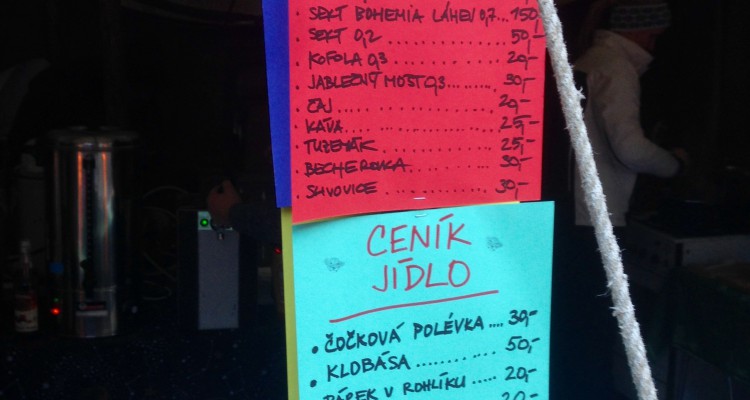 • SEKT BOHEMIA LÁHEV 0,7...150,-
• SEKT 0,2 .......... 50,-
• KOFOLA 0,3 .......... 20,-
• JABLEČNÝ MOŠT 0,3 ........ 30,-
• ČAJ .................. 20,-
• KÁVA ................ 25,-
• TUZEMÁK ............ 25,-
• BECHEROVKA ........ 30,-
• SLIVOVICE .......... 30,-
CENÍK
JÍDLO
• ČOČKOVÁ POLÉVKA .... 30,-
• KLOBÁSA .......... 50,-
PÁREK V ROHLÍKU ..... 20,-
20,-